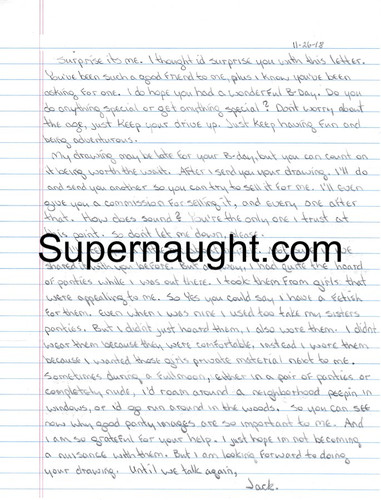 11-26-18
Surprise its me. I thought i'd surprise you with this letter.
You've been such a good friend to me, plus i know you've been
asking for one. I do hope you had a wonderful B-Day. Do you
do anything special or get anything special? Dont worry about
the age, just keep your drive up. Just keep having fun and
being adventurous.
My drawing may be late for your B-day, but you can count on
it being worth the wait. After i send you your drawing. I'll do
and send you another so you can try to sell it for me. I'll even
give you a commission for selling it, and every one after
that. How does sound? You're the only one i trust at
this point. So dont let me down, please.
Supernaught.com
shared with you before. But anyway, I had quite the hoard
of panties while i was out there. I took them from girls that
were appealing to me. So yes you could say i have a fetish
for them. Even when i was nine i used too take my sisters
panties. But i didnt just hoard them, i also wore them. I didnt
wear them because they were comfortable. Instead i wore them
because i wanted those girls private material next to me.
Sometimes during a full moon, either in a pair of panties or
completely nude, i'd roam around a neighborhood peepin in
windows, or i'd go run around in the woods. So you can see
now why good panty images are so important to me. And
i am so grateful for your help. I just hope im not becoming
a nuisance with them. But i am looking forward to doing
your drawing. Until we talk again,
Jack.